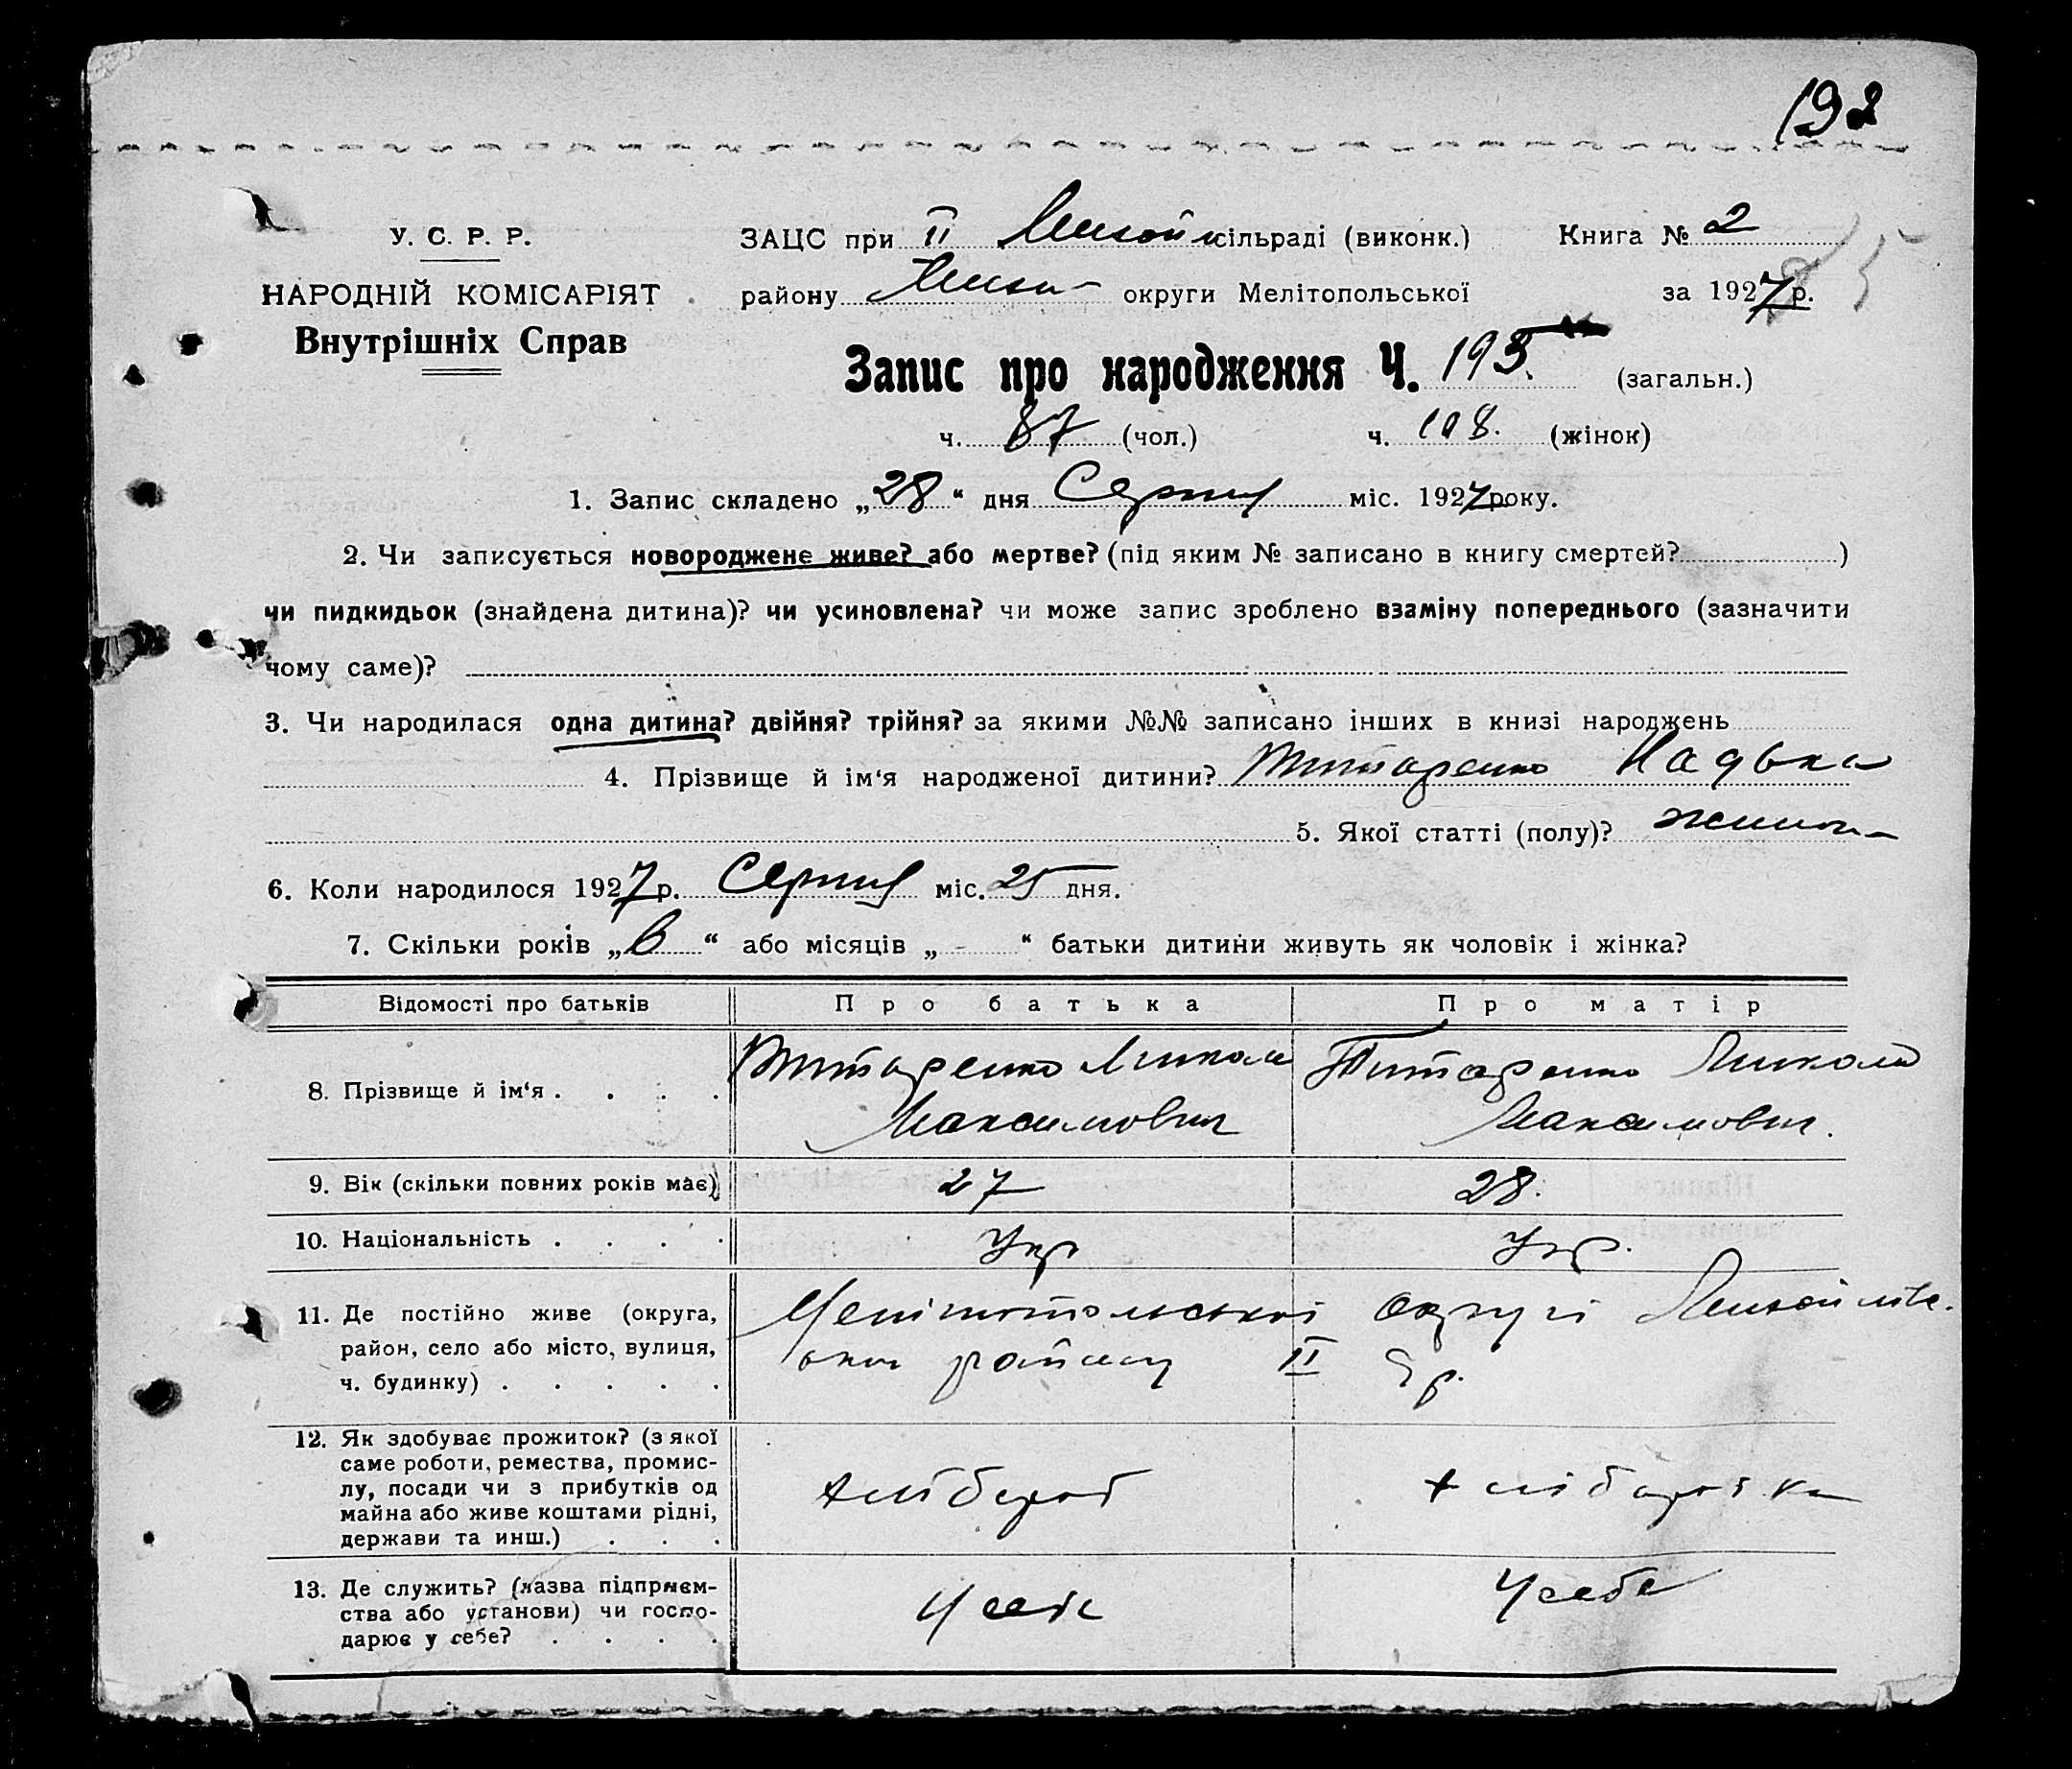 192
У. С. Р. Р.
НАРОДНІЙ КОМІСАРІЯТ
Внутрішніх Справ
ЗАЦС при II сільраді (виконк.) Книга № 2
району округи Мелітопольської за 1927 р.
Запис про народження Ч. 195. (загальн.)
ч. 87 (чол.) ч. 108. (жінок)
1. Запис складено „28“ дня Серпня міс. 1927 року.
2. Чи записується новороджене живе? або мертве? (під яким № записано в книгу смертей? )
чи пидкидьок (знайдена дитина)? чи усиновлена? чи може запис зроблено взаміну попереднього (зазначити
чому саме)?
3. Чи народилася одна дитина? двійня? трійня? за якими №№ записано інших в книзі народжень
4. Прізвище й ім‘я народженої дитини? Титаренко
5. Якої статті (полу)?
6. Коли народилося 1927 р. Серпня міс. 25 дня.
7. Скільки років „6“ або місяців „-“ батьки дитини живуть як чоловік і жінка?
Відомості про батьків Про батька Про матір
8. Прізвище й ім‘я . . . . Титаренко Микола Титаренко Микола
Максимович Максимович.
9. Вік (скільки повних років має) 27 28.
10. Національність . . . . Укр Укр.
11. Де постійно живе (округа, Мелітопольської округи
район, село або місто, вулиця, району II
ч. будинку) . . . . .
12. Як здобуває прожиток? (з якої
саме роботи, ремества, промис-
лу, посади чи з прибутків од хлібороб хліборобка
майна або живе коштами рідні,
держави та инш.) . . .
13. Де служить? (назва підприєм- У себе У себе
ства або установи) чи госпо-
дарює у себе? . . . .